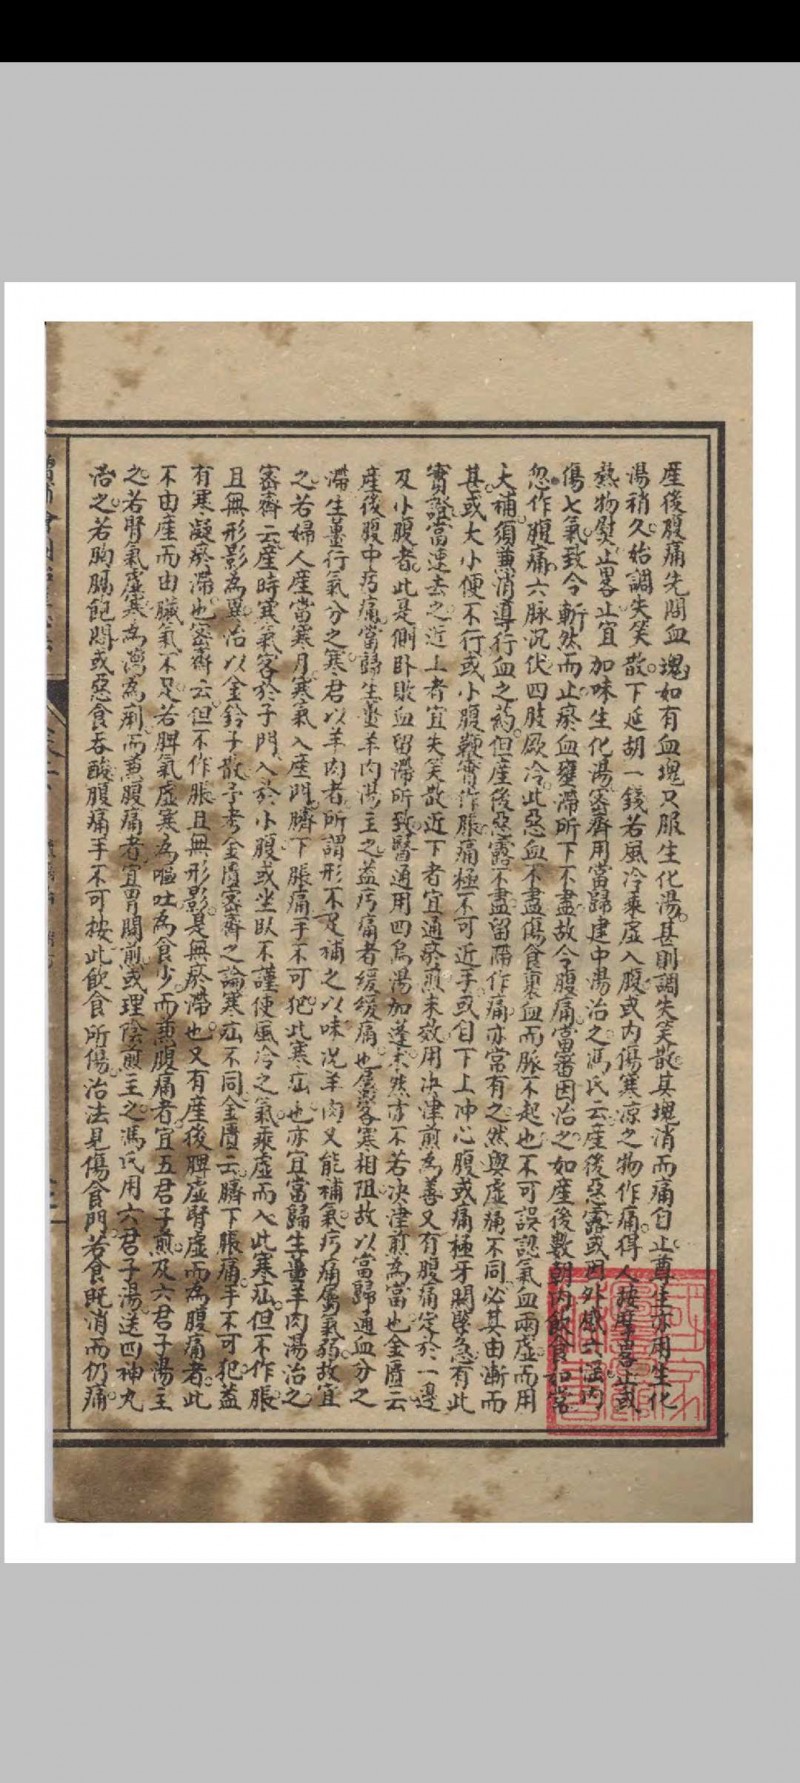 產後腹痛先問血塊如有血塊只服生化湯甚則調失笑散其塊消而痛自止尊生亦用生化
湯稍久始調失笑散下延胡一錢若風冷乘虛入腹或內傷寒涼之物作痛得人按摩畧止或
熱物熨止畧止宜加味生化湯密齋用當歸建中湯治之馮氏云產後惡露或因外感六淫內
傷七氣致令斬然而止瘀血壅滯所下不盡故令腹痛當審因治之如產後數朝內飲食如常
忽作腹痛六脉沉伏四肢厥冷此惡血不盡傷食裹血而脈不起也不可誤認氣血兩虛而用
大補須兼消導行血之藥但產後惡露不盡留滯作痛亦常有之然與虛痛不同必其由漸而
甚或大小便不行或小腹鞕實作脹痛極不可近手或自下上冲心腹或痛極牙關緊急有此
實證當速去之近上者宜失笑散近下者宜通瘀煎未效用决津煎為善又有腹痛定於一邊
及小腹者此是側卧敗血留滯所致醫通用四烏湯加蓬朮然亦不若决津煎為當也金匱云
產後腹中㽲痛當歸生薑羊肉湯主之蓋㽲痛者緩緩痛也屬客寒相阻故以當歸通血分之
滯生薑行氣分之寒君以羊肉者所謂形不足補之以味况羊肉又能補氣㽲痛屬氣弱故宜
之若婦人產當寒月寒氣入產門臍下脹痛手不可犯此寒疝也亦宜當歸生薑羊肉湯治之
密齋云產時寒氣客於子門入於小腹或坐臥不謹使風冷之氣乘虛而入此寒疝但不作脹
且無形影為異治以金鈴子散予考金匱密齋之論寒疝不同金匱云臍下脹痛手不可犯蓋
有寒凝瘀滯也密齋云但不作脹且無形影是無瘀滯也又有產後脾虛腎虛而為腹痛者此
不由產而由臟氣不足若脾氣虛寒為嘔吐為食少而兼腹痛者宜五君子煎及六君子湯主
之若腎氣虛寒為瀉為痢而兼腹痛者宜胃關煎或理陰煎主之馮氏用六君子湯送四神丸
治之若胸膈飽悶或惡食吞酸腹痛手不可按此飲食所傷治法見傷食門若食既消而仍痛